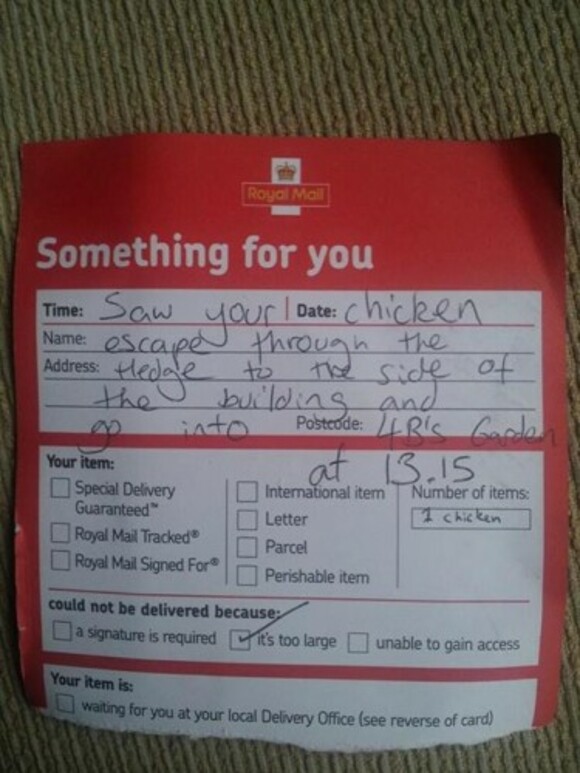 Royal Mail
Something for you
Time: Saw your Date: chicken
Name: escape through the
Address: Hedge to the side of
the building and
go into Postcode: 4B's Garden
at 13.15
Your item:
Special Delivery Guaranteed™
Royal Mail Tracked®
Royal Mail Signed For®
International item
Letter
Parcel
Perishable item
Number of items:
1 chicken
could not be delivered because:
a signature is required ✓ it's too large unable to gain access
Your item is:
waiting for you at your local Delivery Office (see reverse of card)